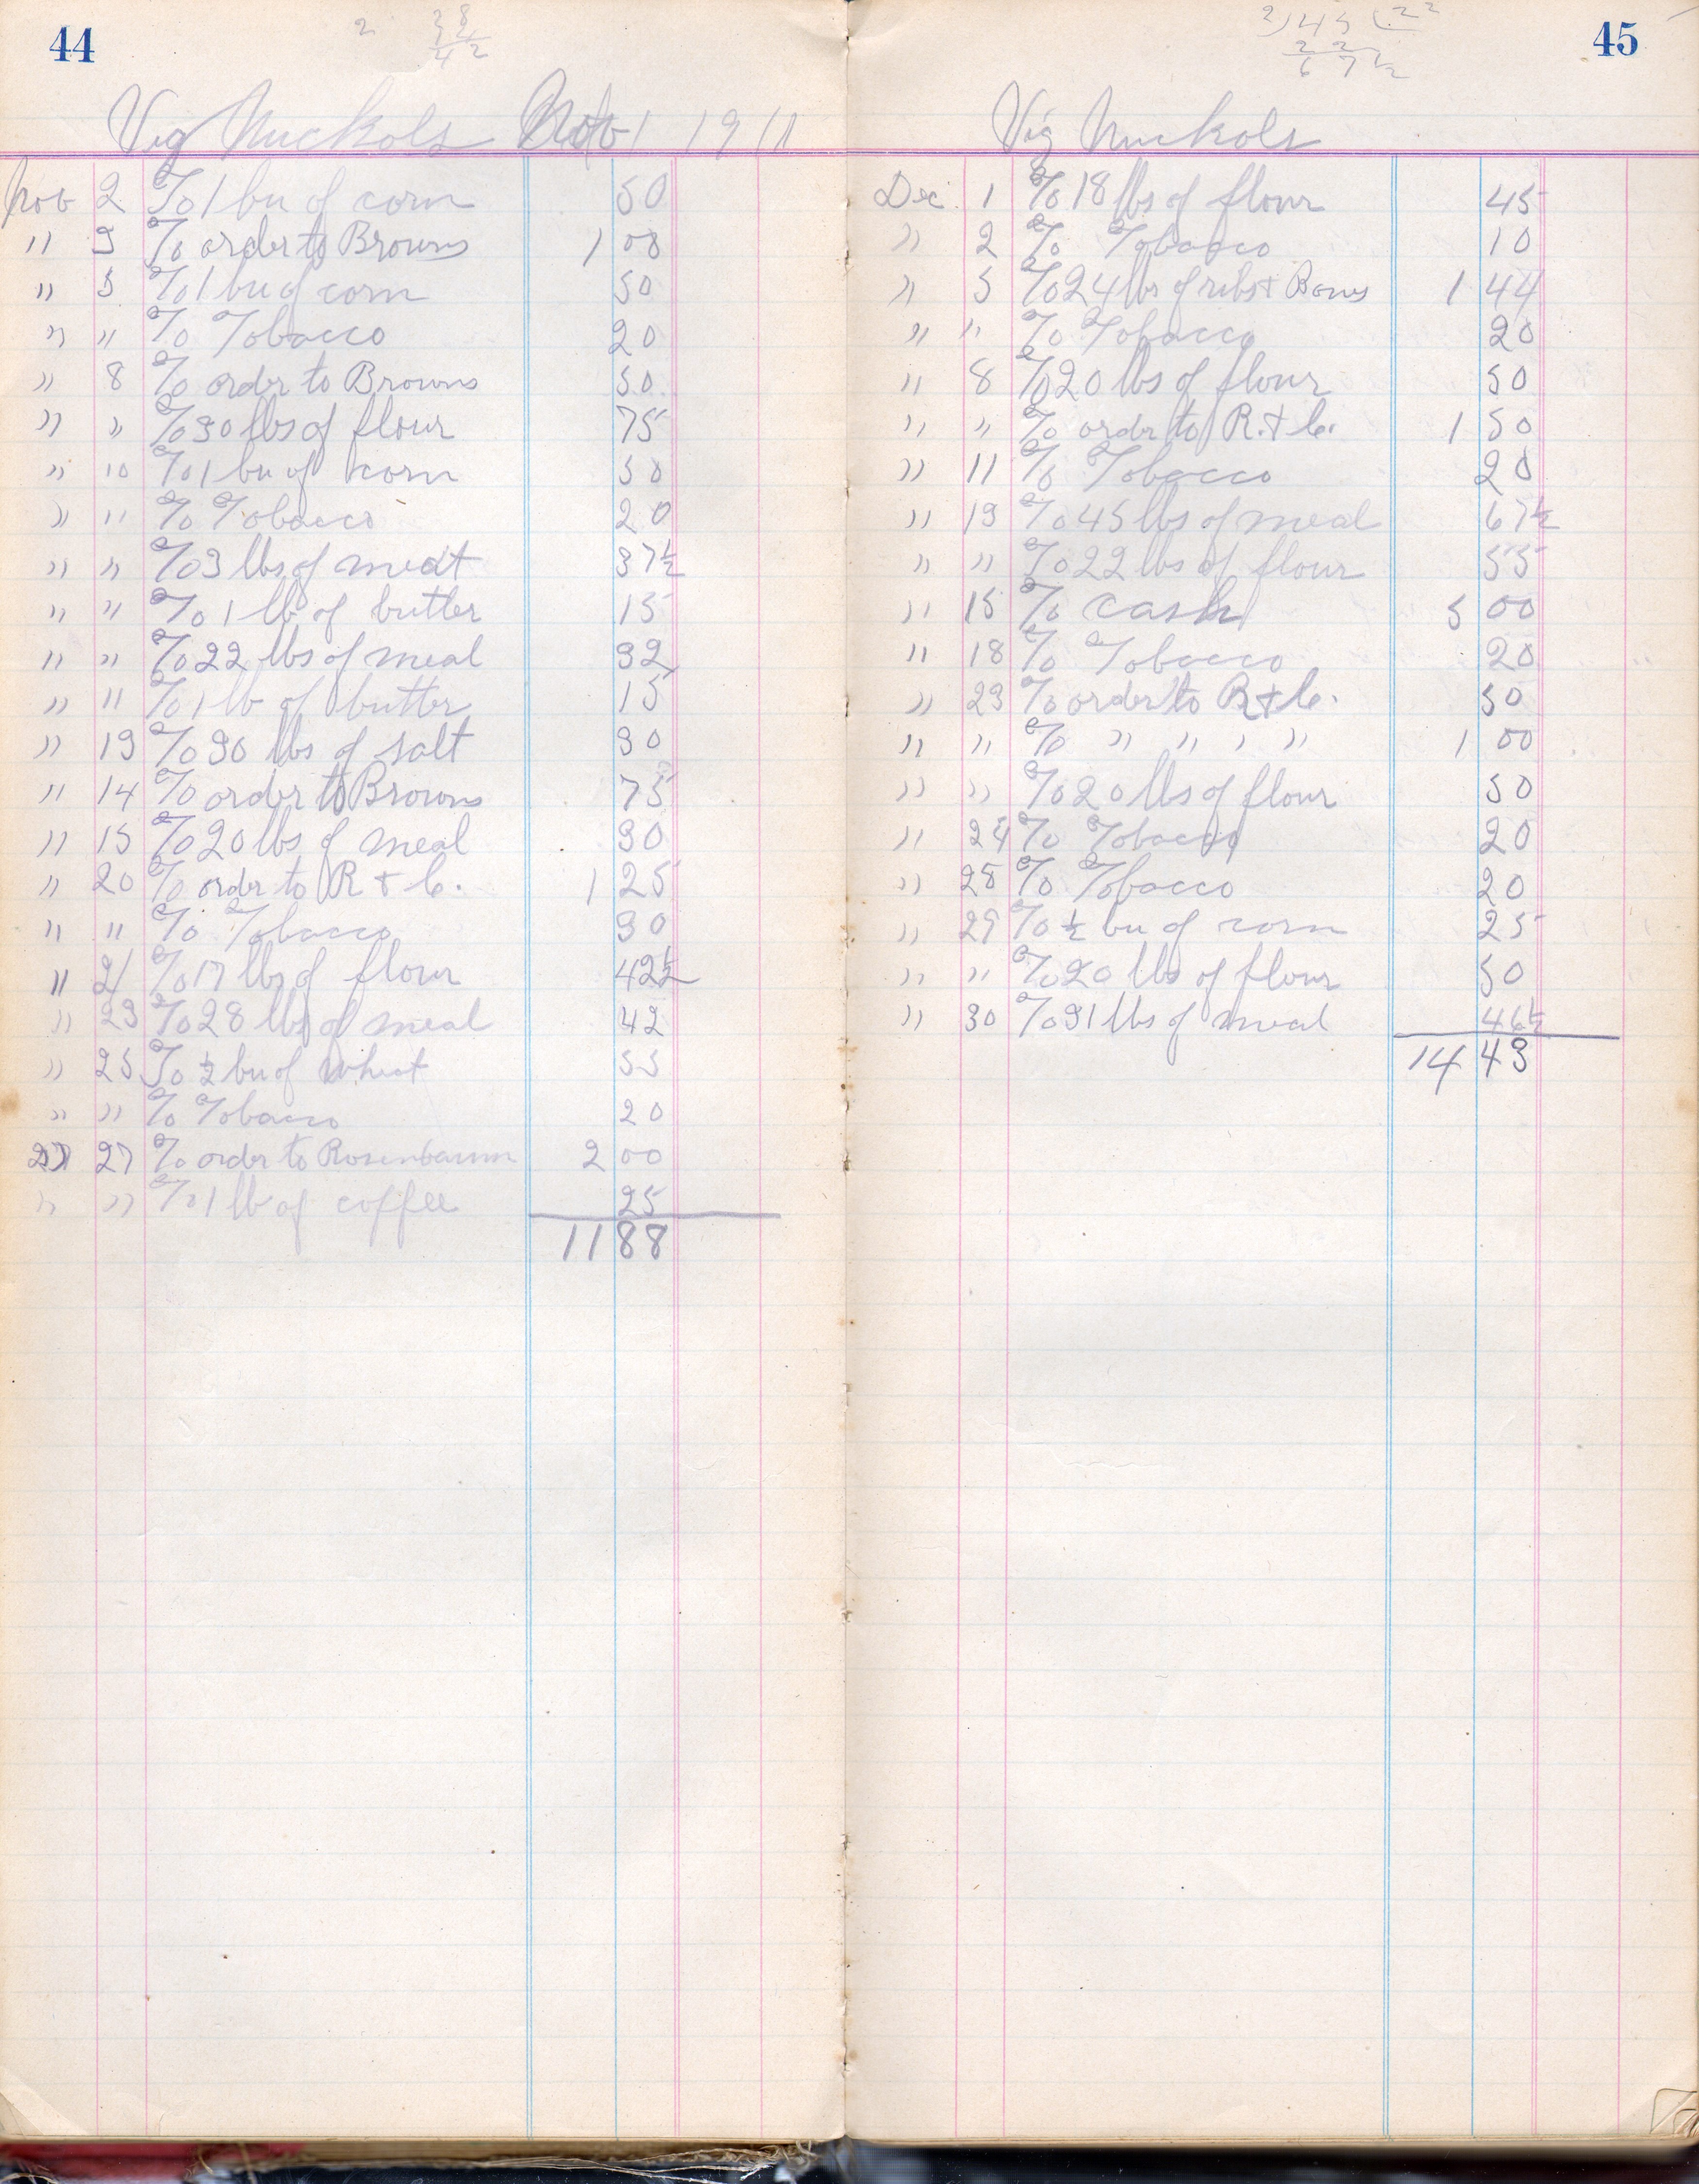 44
2 38
4
42
Vig Nuckols Nov 1 1911
Nov 2 To 1 bu of corn 50
" 3 To order to Browns 1 00
" 5 To 1 bu of corn 50
" " To Tobacco 20
" 8 To order to Browns 50
" " To 30 lbs of flour 75
" 10 To 1 bu of corn 50
" " To Tobacco 20
" " To 3 lbs of meat 37½
" " To 1 lb of butter 15
" " To 22 lbs of meal 32
" " To 1 lb of butter 15
" 13 To 30 lbs of salt 30
" 14 To order to Browns 75
" 15 To 20 lbs of meal 30
" 20 To order to R & C. 1 25
" " To Tobacco 30
" 21 To 17 lbs of flour 42½
" 23 To 28 lbs of meal 42
" 25 To ½ bu of wheat 55
" " To Tobacco 20
27 To order to Rosenbaum 2 00
" " To 1 lb of coffee 25
11 88
45
2)45(22
2 2
6 7½
Vig Nuckols
Dec 1 To 18 lbs of flour 45
" 2 To Tobacco 10
" 5 To 24 lbs of ribs & Bones 1 44
" " To Tobacco 20
" 8 To 20 lbs of flour 50
" " To order to R. & C. 1 50
" 11 To Tobacco 20
" 13 To 45 lbs of meal 67½
" " To 22 lbs of flour 55
" 15 To cash 5 00
" 18 To Tobacco 20
" 23 To order to R & C. 50
" " To " " " " 1 00
" " To 20 lbs of flour 50
" 24 To Tobacco 20
" 28 To Tobacco 20
" 29 To ½ bu of corn 25
" " To 20 lbs of flour 50
" 30 To 31 lbs of meal 46½
14 43